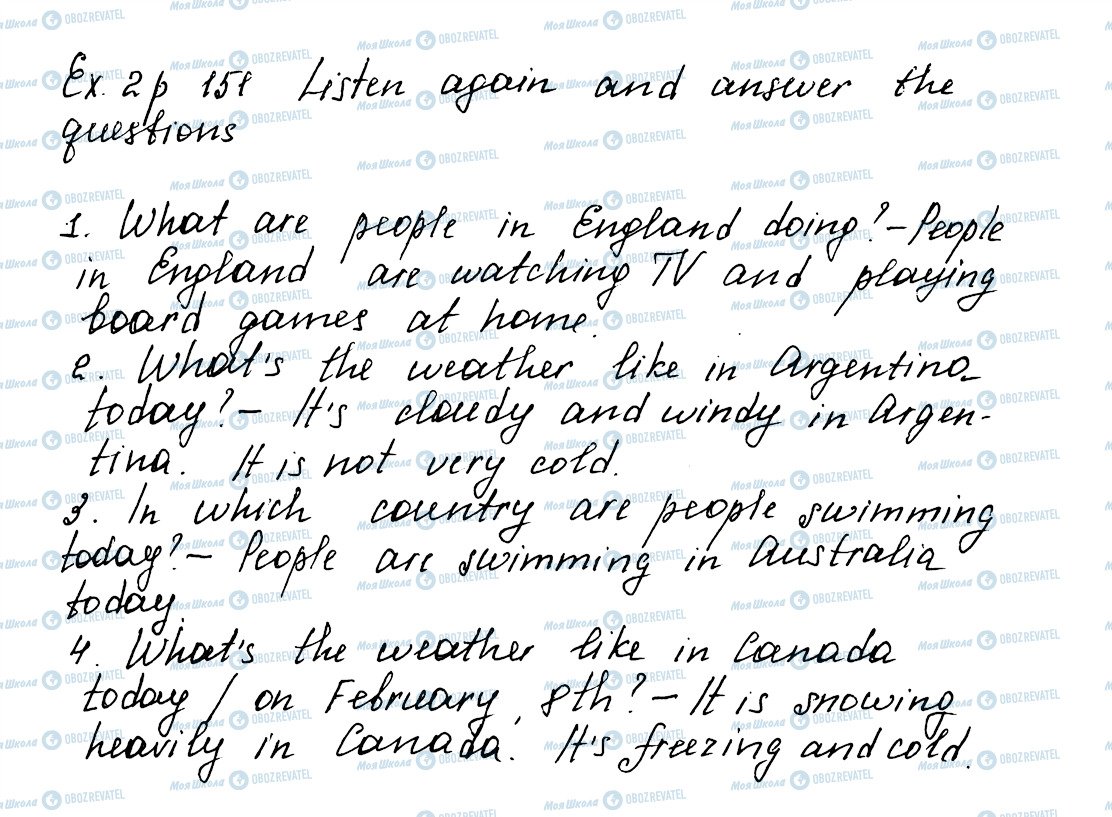 Ex. 2 p 151 Listen again and answer the
questions
1. What are people in England doing? – People
in England are watching TV and playing
board games at home.
2. What's the weather like in Argentina
today? – It's cloudy and windy in Argen-
tina. It is not very cold.
3. In which country are people swimming
today? – People are swimming in Australia
today.
4. What's the weather like in Canada
today / on February, 8th? – It is snowing
heavily in Canada. It's freezing and cold.
Моя Школа OBOZREVATEL